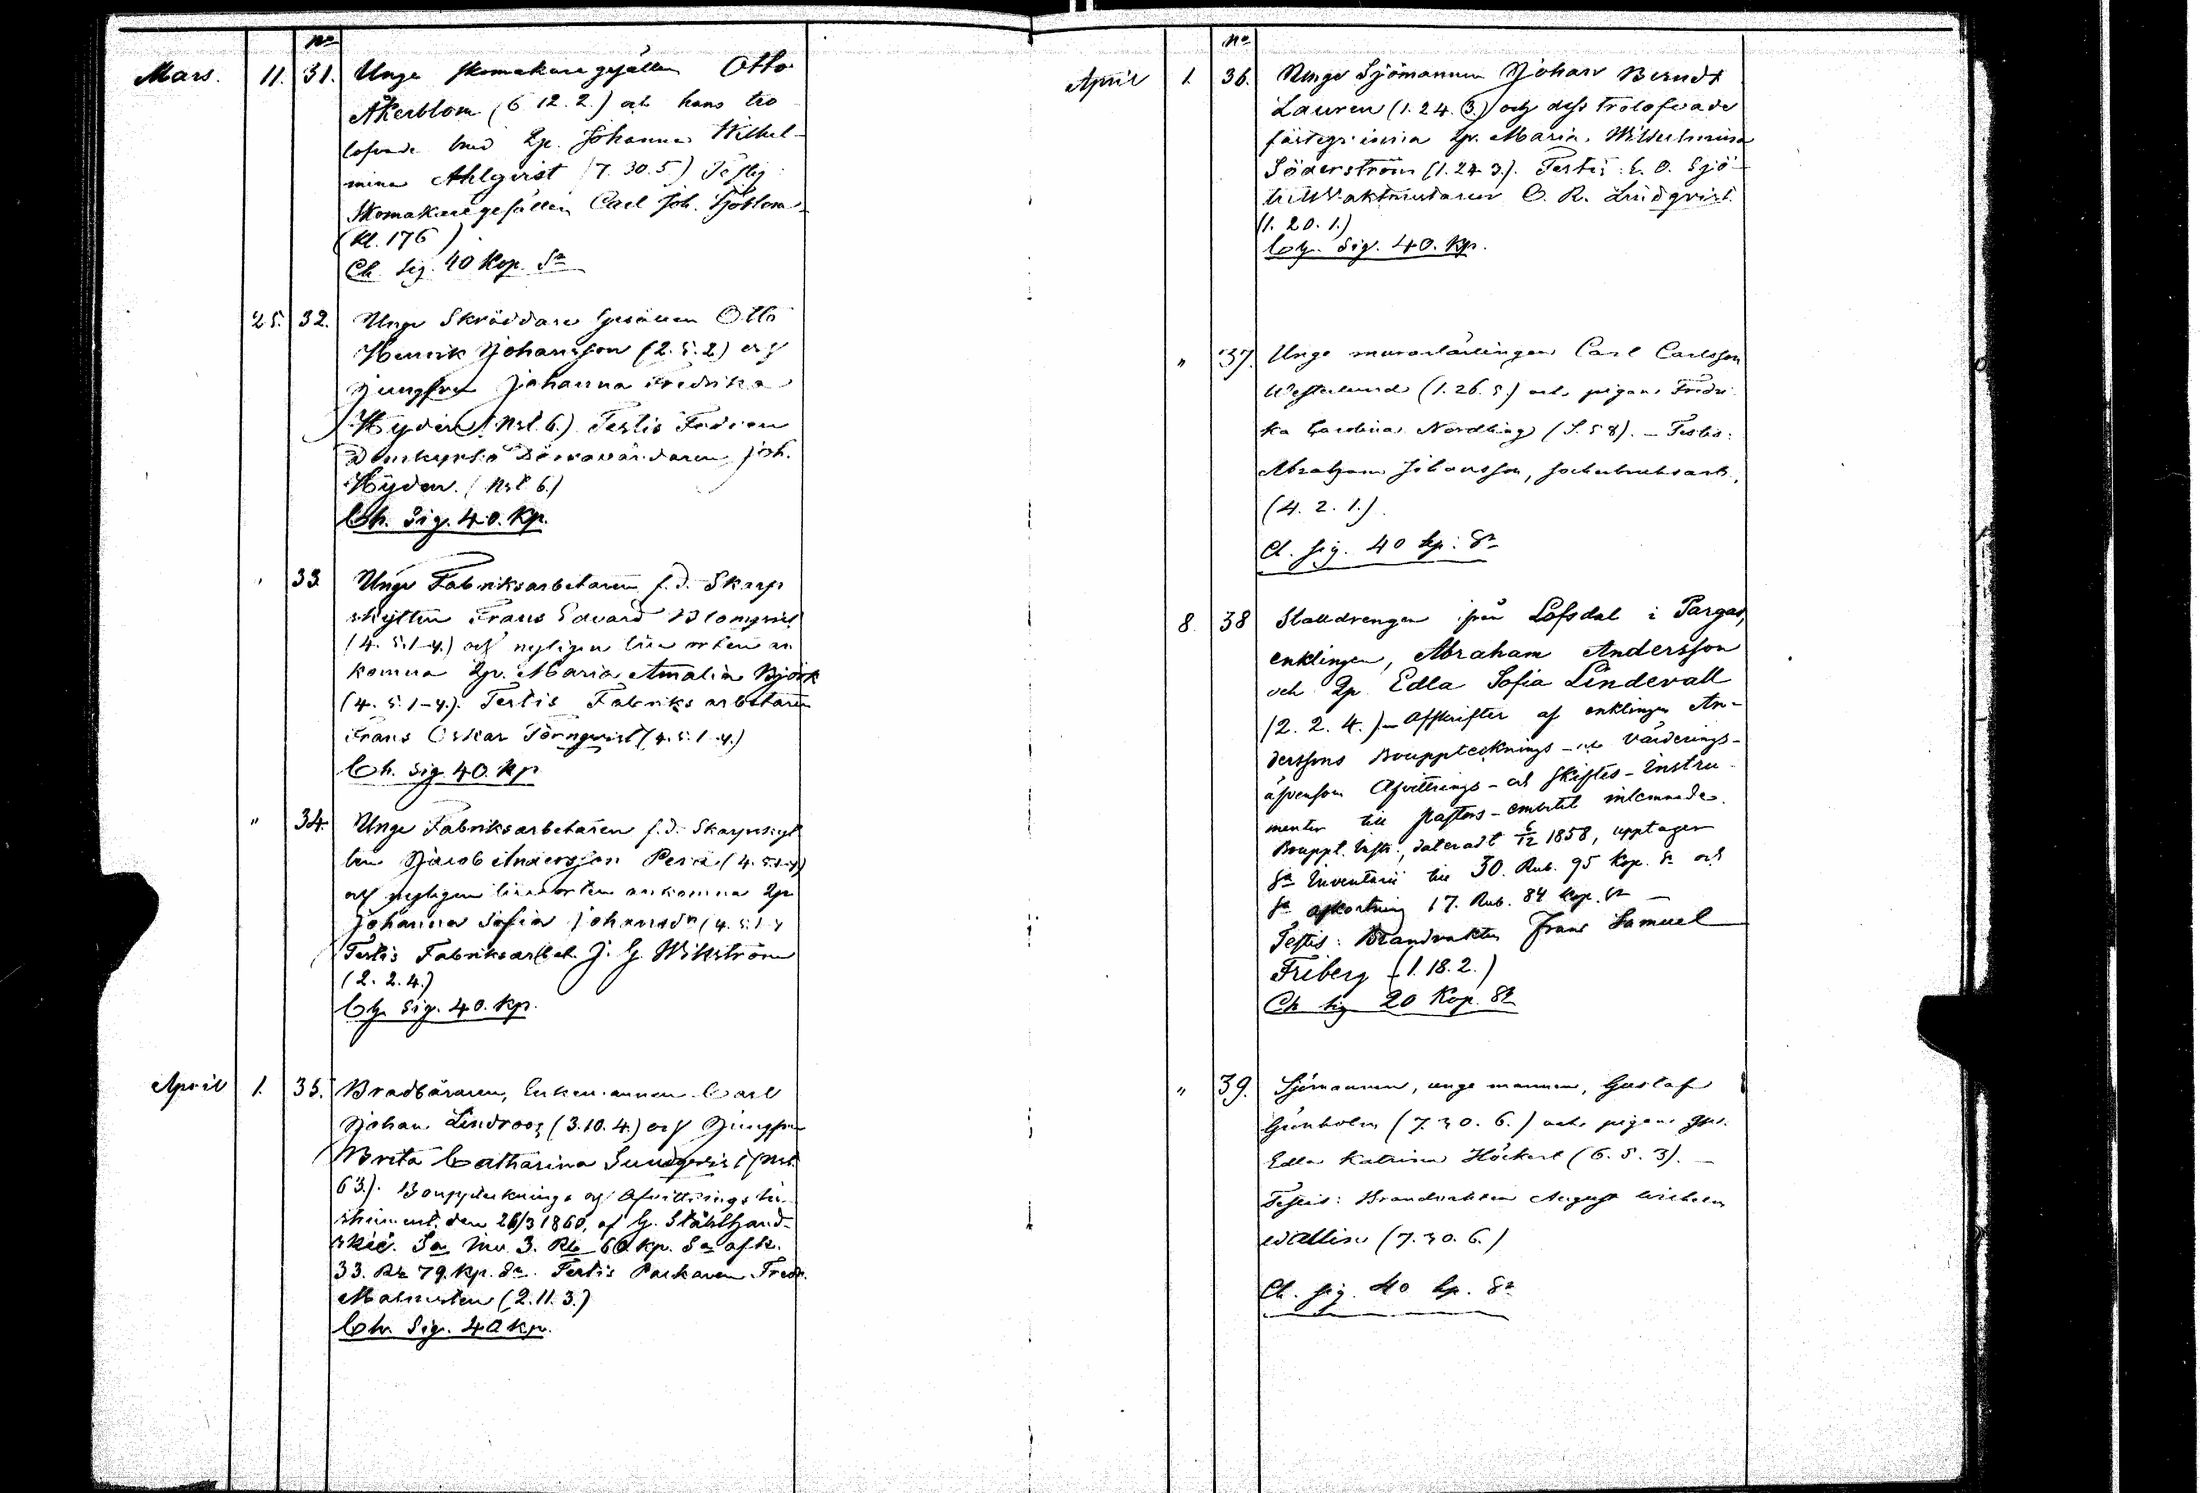 No
Mars. 11. 31. Unge Skomakaregesällen Otto
Åkerblom (6 12. 2.) och hans tro
lofvade brud Qp. Johanna Wilhel-
mina Ahlqvist (7. 30. 5) Testis
Skomakaregesällen Carl Joh. Sjöblom
(Kl. 176)
Ch. Sig. 40 Kop. Sr
25. 32. Unge Skräddare Gesällen Otto
Henrik Johansson (2. 5. 2) och
Jungfrun Johanna Fredrika
Hyden (Nrl 6.) Testis Fadren
Domkyrko Joh.
Hyden. (Nrl 6.)
Ch. Sig. 40. Kp.
" 33. Unge Fabriksarbetaren f. d. Skarp
skytten Frans Edvard Blomqvist
(4. 5. 1-4.) och nyligen till orten an
komna Qp. Maria Amalia Björk
(4. 5. 1-4.). Testis Fabriks arbetaren
Frans Oskar Törnqvist (4. 5. 1-4.)
Ch. Sig. 40. Kp
" 34. Unge Fabriksarbetaren f. d. Skarpskyt
ten Jacob Andersson Perä (4. 5. 1-4)
och nyligen till orten ankomna Qp
Johanna Sofia Johansdr (4. 5. 1-4
Testis Fabriksarbet. J. G. Wikström
(2. 2. 4.)
Ch. Sig. 40. Kp.
April 1. 35. Bradbäraren, Enkemannen Carl
Johan Lindroos (3. 10. 4.) och Jungfrun
Brita Catharina Sundqvist (Nrl.
63.). Bouppteknings och Afvittrings In-
strument, den 26/3 1860, af G. Stålhand-
ske. Sa Inv. 3. Rb 60. Kp. Sa afk.
33. Rb 79. Kp. Sr. Testis Packaren Fredr.
Malmsten (2. 11. 3.)
Ch. Sig. 40 Kp.
No
April 1. 36. Unge Sjömannen Johan Berndt
Lauren (1. 24. 3.) och dess trolofvade
fästeqvinna Qp. Maria Wilhelmina
Söderström (1. 24 3.). Testis: E. O. Sjö-
tullvaktmästaren C. R. Lindqvist.
(1. 20. 1.)
Ch. Sig. 40. Kp.
" 37. Unge murarlärlingen Carl Carlsson
Westerlund (1. 26. 5.) och pigan Fredri
ka Carolina Nordling (S. 58). - Testis:
Abraham Johansson, sockerbruksarb.,
(4. 2. 1.).
Ch. sig. 40 kp. Sr
8. 38 Stalldrengen från Lofsdal i Pargas,
enklingen, Abraham Andersson
och Qp Edla Sofia Lindevall
(2. 2. 4.) - Afskrifter af enklingen An-
derssons Bouppteknings- och Värderings-
äfvensom Afvittrings- och Skiftes-Instru-
menter till Pastors-embetet inlemnade.
Bouppt. Instr., dateradt 6/12 1858, upptager
Sa Inventarii till 30. Rub. 95 Kop. Sr och
Sa afkortning 17. Rub. 84 Kop. Sr
Testis: Brandvakten Frans Samuel
Friberg (1. 18. 2.)
Ch sig 20 Kop. Sr
" 39. Sjömannen, unge mannen, Gustaf
Grönholm (7. 30. 6.) och pigan
Edla Katrina Höckert (6. 5. 3). -
Testis: Brandvakten August Wilhelm
Wallin (7. 30. 6.)
Ch. sig. 40 kp. Sr